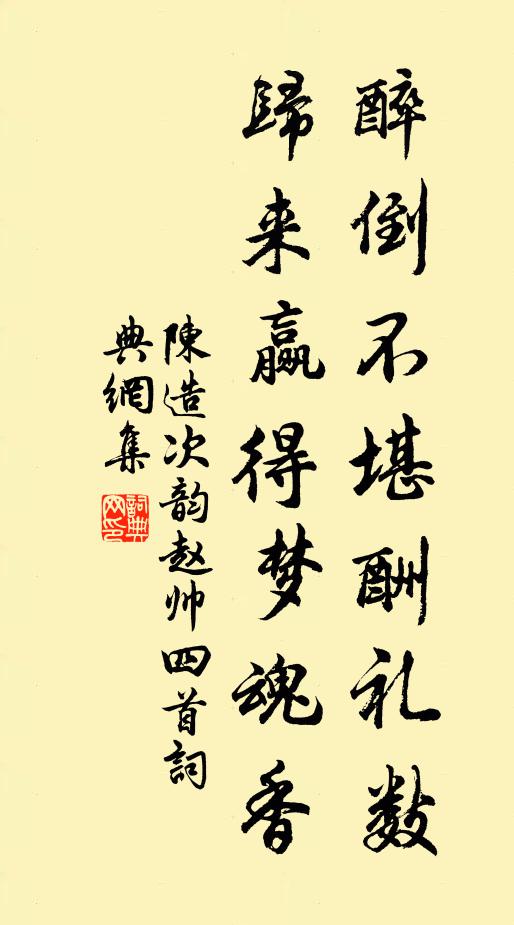 醉倒不堪酬礼数
歸来赢得梦魂香
陳造次韵赵帅四首詞
典網集
詞典
网印